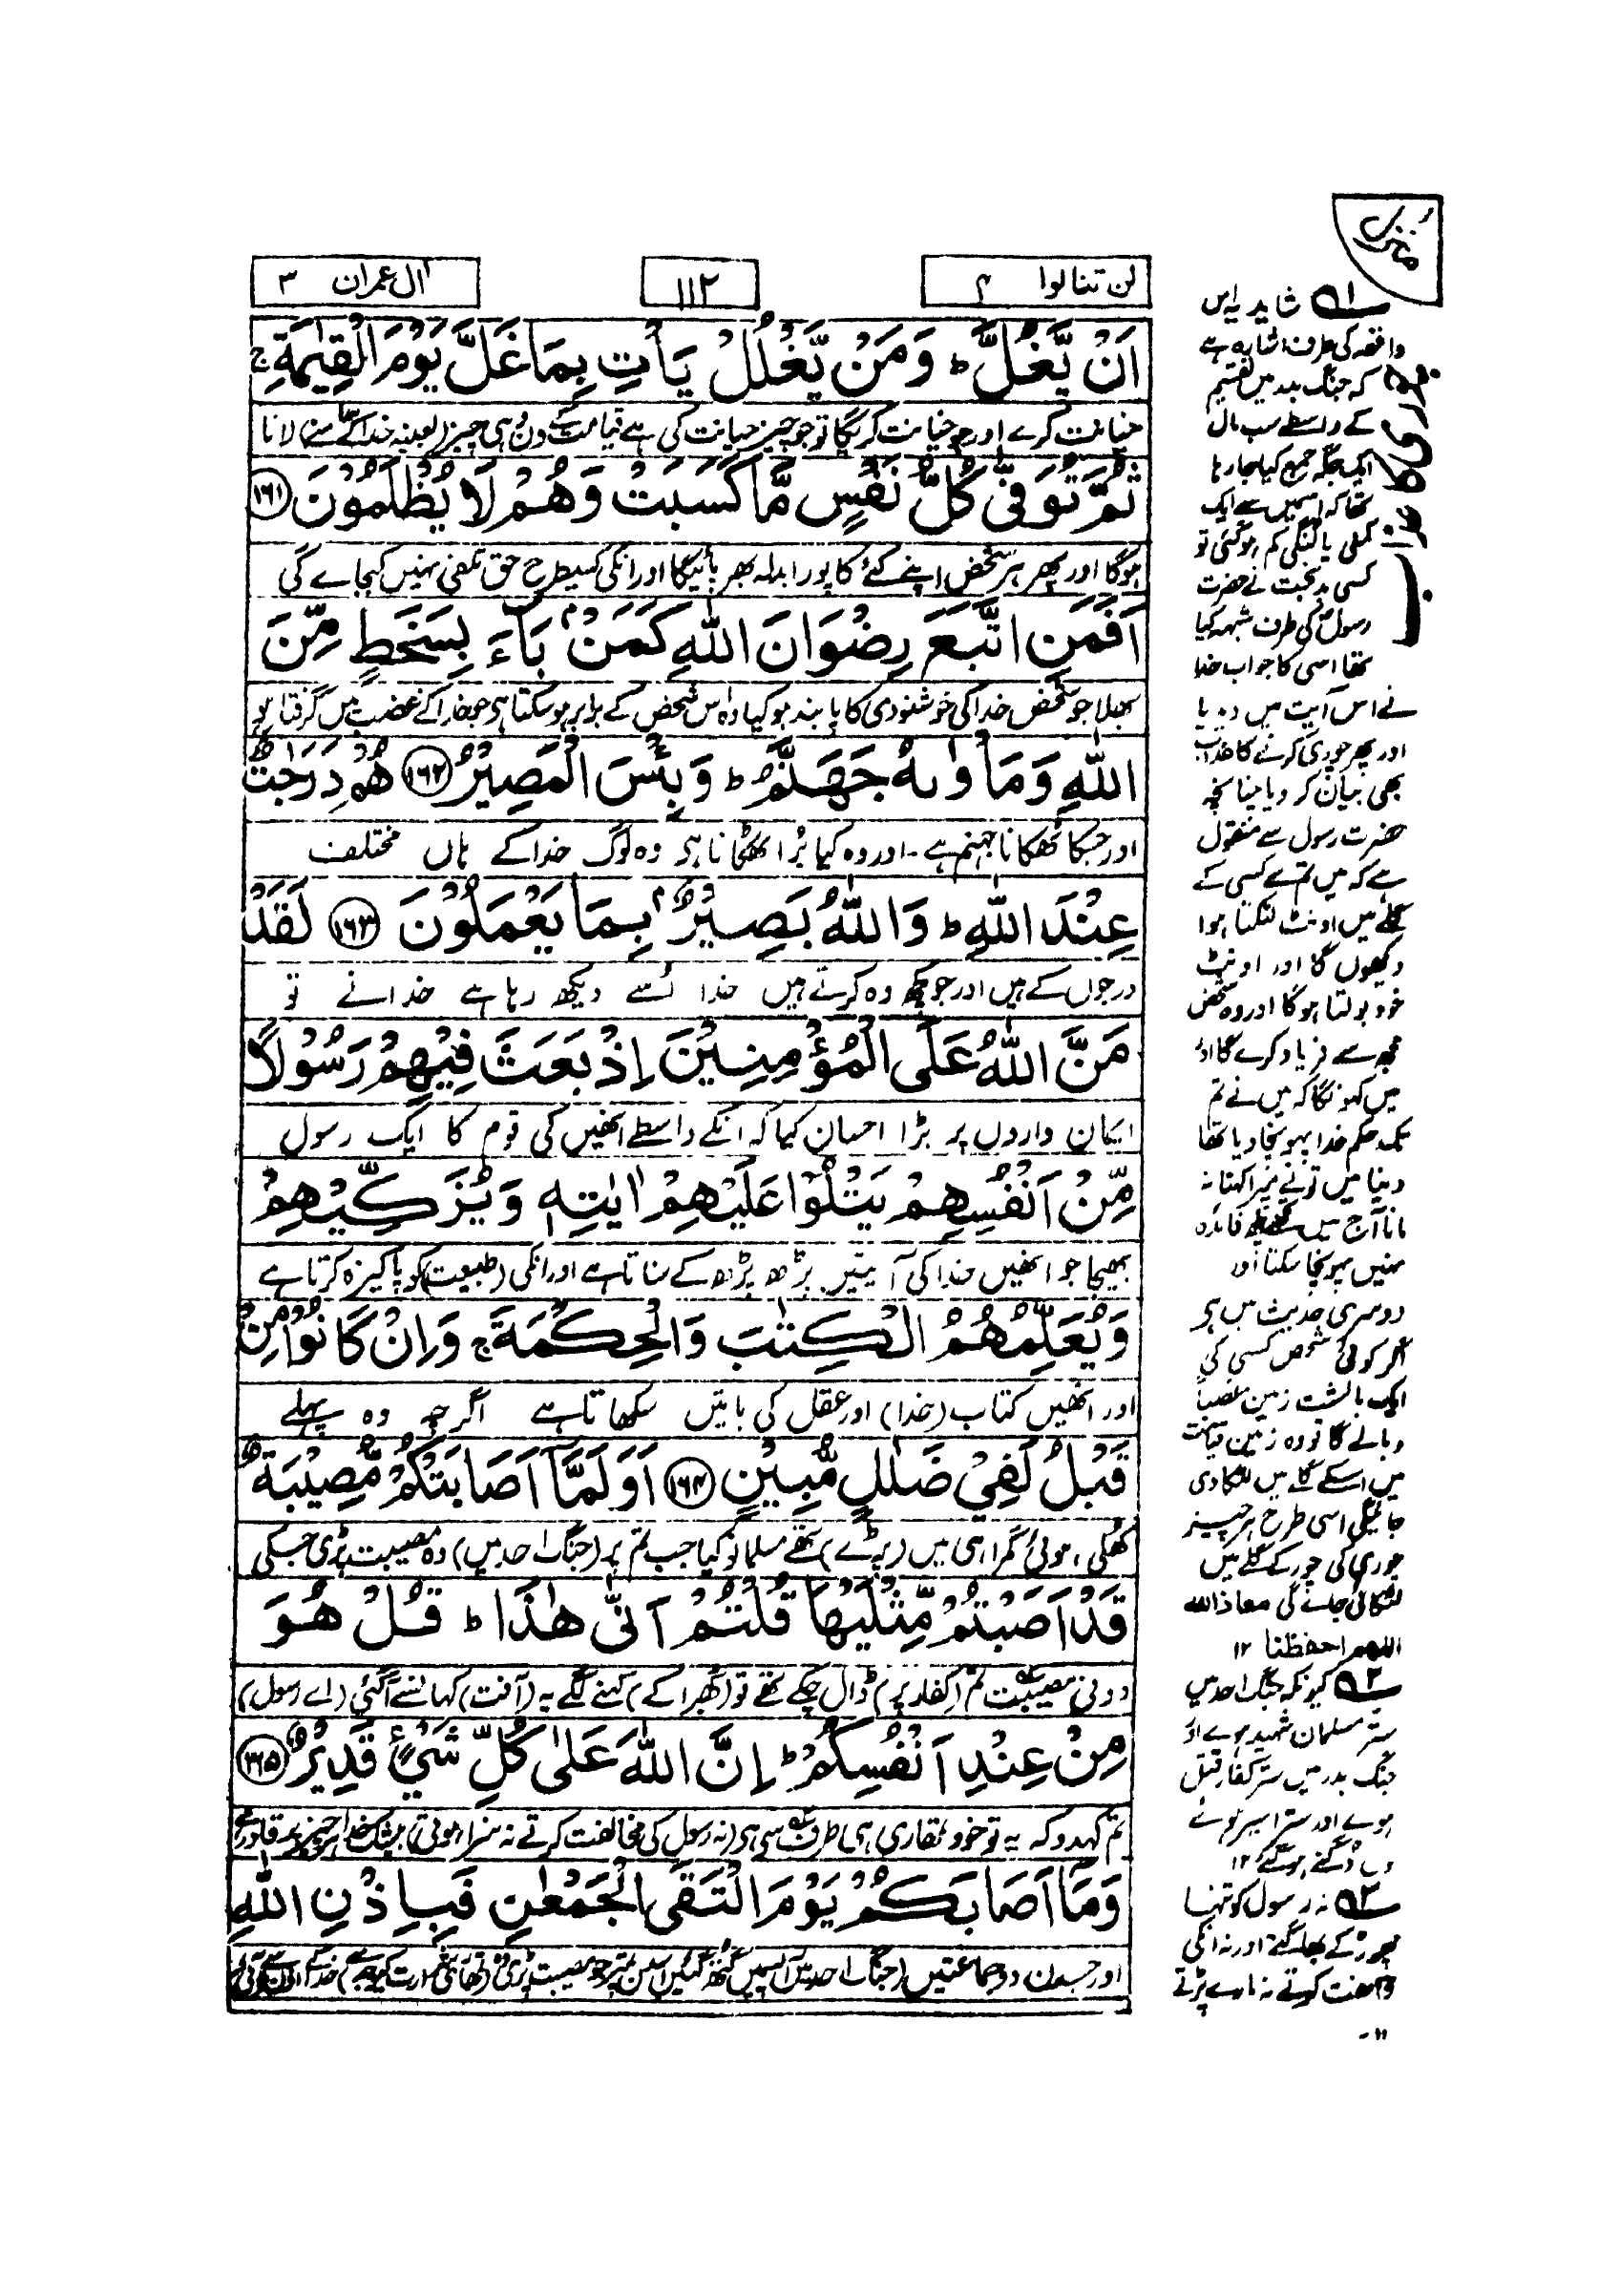 لن تنالوا ۴
۱۱۲
اٰل عمران ۳
اَنْ یَّغُلَّ ؕ وَمَنْ یَّغْلُلْ یَاْتِ بِمَا غَلَّ یَوْمَ الْقِیٰمَةِ ۚ
خیانت کرے اور جو خیانت کریگا تو جو چیز خیانت کی ہے قیامت کے دن وہی چیز (بعینہ خدا کے سامنے) لانا
ثُمَّ تُوَفّٰی كُلُّ نَفْسٍ مَّا كَسَبَتْ وَهُمْ لَا یُظْلَمُوْنَ ۱۶۱
ہوگا اور پھر ہر شخص اپنے کئے کا پورا بدلہ بھر پائیگا اور انکی کسیطرح حق تلفی نہیں کیجاے گی
اَفَمَنِ اتَّبَعَ رِضْوَانَ اللّٰهِ كَمَنْۢ بَآءَ بِسَخَطٍ مِّنَ
بھلا جو شخص خدا کی خوشنودی کا پابند ہو کیا وہ اس شخص کے برابر ہو سکتا ہی جو خدا کے غضب میں گرفتار ہو
اللّٰهِ وَمَاْوٰىهُ جَهَنَّمُ ؕ وَبِئْسَ الْمَصِیْرُ ۱۶۲ هُمْ دَرَجٰتٌ
اور جسکا ٹھکانا جہنم ہے۔ اور وہ کیا بُرا ٹھکانا ہی وہ لوگ خدا کے ہاں مختلف
عِنْدَ اللّٰهِ ؕ وَاللّٰهُ بَصِیْرٌۢ بِمَا یَعْمَلُوْنَ ۱۶۳ لَقَدْ
درجوں کے ہیں اور جو کچھ وہ کرتے ہیں خدا اُسے دیکھ رہا ہے خدا نے تو
مَنَّ اللّٰهُ عَلَی الْمُؤْمِنِیْنَ اِذْ بَعَثَ فِیْهِمْ رَسُوْلًا
ایمان داروں پر بڑا احسان کیا کہ انکے واسطے انھیں کی قوم کا ایک رسول
مِّنْ اَنْفُسِهِمْ یَتْلُوْا عَلَیْهِمْ اٰیٰتِهٖ وَیُزَكِّیْهِمْ
بھیجا جو انھیں خدا کی آیتیں پڑھ پڑھ کے سناتا ہے اور انکی (طبیعت) کو پاکیزہ کرتا ہے
وَیُعَلِّمُهُمُ الْكِتٰبَ وَالْحِكْمَةَ ۚ وَاِنْ كَانُوْا مِنْ
اور انھیں کتاب (خدا) اور عقل کی باتیں سکھاتا ہے اگرچہ وہ پہلے
قَبْلُ لَفِیْ ضَلٰلٍ مُّبِیْنٍ ۱۶۴ اَوَلَمَّآ اَصَابَتْكُمْ مُّصِیْبَةٌ
کھلی ہوئی گمراہی میں (پڑے) تھے مسلمانو کیا جب تم پر (جنگ احد میں) وہ مصیبت پڑی جسکی
قَدْ اَصَبْتُمْ مِّثْلَیْهَا قُلْتُمْ اَنّٰی هٰذَا ؕ قُلْ هُوَ
دونی مصیبت تم (کفار پر) ڈال چکے تھے تو (گھبرا کے) کہنے لگے یہ (آفت) کہانسے آگئی (اے رسول)
مِنْ عِنْدِ اَنْفُسِكُمْ ؕ اِنَّ اللّٰهَ عَلٰی كُلِّ شَیْءٍ قَدِیْرٌ ۱۶۵
تم کہدو کہ یہ تو خود تمھاری ہی طرف سے ہی (نہ رسول کی مخالفت کرتے نہ سزا ہوتی) بیشک خدا ہر چیز پر قادر ہے
وَمَآ اَصَابَكُمْ یَوْمَ الْتَقَی الْجَمْعٰنِ فَبِاِذْنِ اللّٰهِ
اور جسدن دو جماعتیں (جنگ احد میں) آپسمیں گتھ گئیں اسدن تم پر جو مصیبت پڑی وہ
منزل
۱ شاید یہ اس
واقعہ کی طرف اشارہ ہے
کہ جنگ بدر میں تقسیم
کے واسطے سب مال
ایک جگہ جمع کیا جا رہا
تھا کہ اسمیں سے ایک
کملی یا لنگی گم ہو گئی تو
کسی بدبخت نے حضرت
رسول کی طرف شبہہ کیا
تھا اسی کا جواب خدا
نے اس آیت میں دیدیا
اور پھر چوری کرنے کا عذاب
بھی بیان کر دیا چنانچہ
حضرت رسول سے منقول
ہے کہ میں تم سے کسی کے
گلے میں اونٹ لٹکتا ہوا
دیکھوں گا اور اونٹ
خود بولتا ہوگا اور وہ شخص
مجھ سے فریاد کرے گا اور
میں کہونگا کہ میں نے تم
تک حکم خدا پہونچا دیا تھا
دنیا میں تو نے میرا کہنا نہ
مانا آج میں کچھ فائدہ
نہیں پہونچا سکتا اور
دوسری حدیث میں ہی
اگر کوئی شخص کسی کی
ایک بالشت زمین غصباً
دبالے گا تو وہ زمین قیامت
میں اسکے گلے میں لٹکا دی
جائیگی اسی طرح ہر چیز
چوری کی چور کے گلے میں
لٹکائی جاے گی معاذ اللہ
اللهم احفظنا ۱۲
۲ کیونکہ جنگ احد میں
ستر مسلمان شہید ہوے اور
جنگ بدر میں ستر کفار قتل
ہوے اور ستر اسیر ہوے
دگنے ہو گئے ۱۲
۳ نہ رسول کو تنہا
چھوڑ کے بھاگتے اور نہ انکی
مخالفت کرتے نہ مارے پڑتے